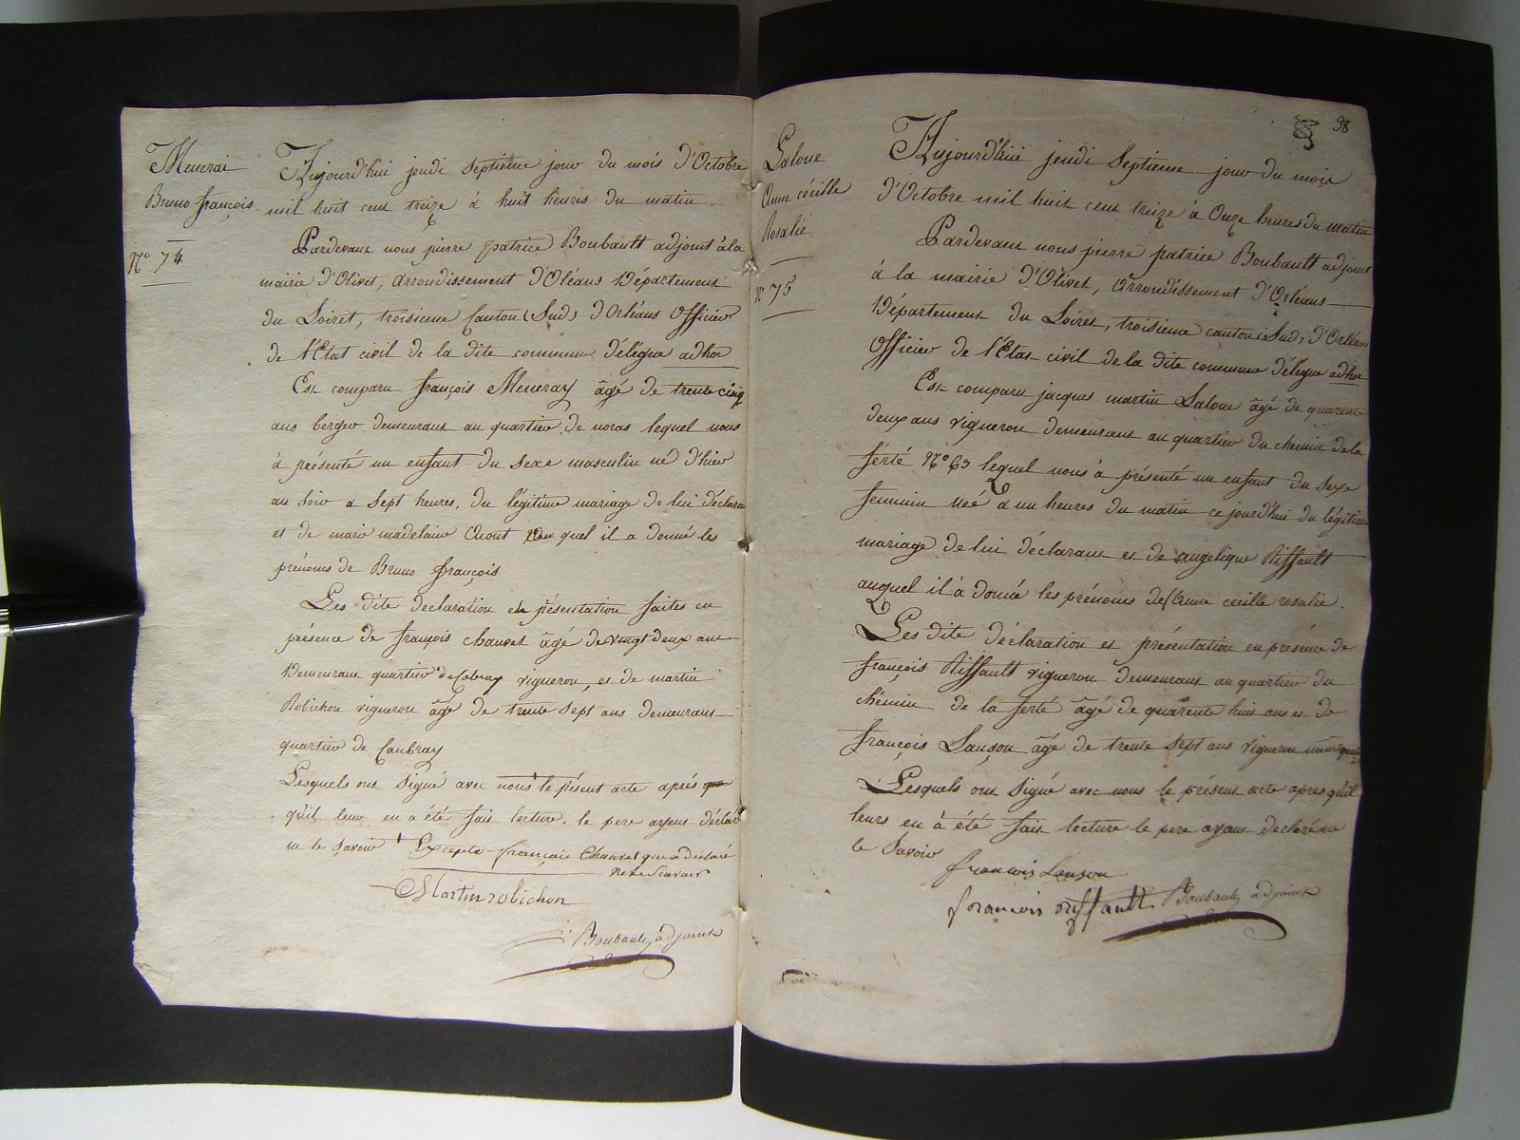 Meunrai
Bruno françois
N° 74
Aujourd'hui jeudi septieme jour du mois d'Octobre
mil huit cent treize à huit heures du matin
Pardevant nous pierre patrice Boubault adjoint à la
mairie d'Olivet, arrondissement d'Orléans Département
du Loiret, troisieme Canton (Sud) d'Orléans Officier
de l'Etat civil de la dite commune délégue adhoc
Est comparu françois Meuneray âgé de trente cinq
ans berger demeurant au quartier de noras lequel nous
à présenté un enfant du sexe masculin né d'hier
au soir a sept heures, du légitime mariage de lui déclarant
et de marie madelaine auquel il a donné les
prénoms de Bruno françois
Les dite declaration et présentation faites en
présence de françois chauvet âgé de vingt deux ans
Demeurant quartier de Cobray vigneron, et de martin
Robichon vigneron âgé de trente sept ans demeurant
quartier de Caubray
Lesquels ont signé avec nous le présent acte aprés
qu'il leur en a été fait lecture. le pere ayant déclaré
ne le savoir Excepte françois Chauvet que a déclaré
ne le Savoir
Martin robichon
Boubault adjoint
98
Laloue
Anne cécille
Rosalie
N° 75
Aujourd'hui jeudi septieme jour du mois
d'Octobre mil huit cent treize à Onze heures du matin
Pardevant nous pierre patrice Boubault adjoint
à la mairie d'Olivet, Arrondissement d'Orléans
Département du Loiret, troisieme canton (Sud) d'Orléans
Officier de l'Etat civil de la dite commune délégue adhoc
Est comparu jacques martin Laloue âgé de quarante
deux ans vigneron demeurant au quartier du chemin de la
ferté N° 63 lequel nous à présenté un enfant du sexe
feminin née à un heures du matin ce jourd'hui du légitime
mariage de lui déclarant et de angelique Riffault
auquel il à donné les prénoms de Anne cecille rosalie.
Les dite déclaration et présentation en présence de
françois Riffault vigneron demeurant au quartier du
chemin de la ferté âgé de quarente huit ans et de
françois Lanson âgé de trente sept ans vigneron
Lesquels ont signé avec nous le présent acte apres qu'il
leurs en à été fait lecture le pere ayant declaré ne
le Savoir
francois Lanson
francois riffault Boubault adjoint